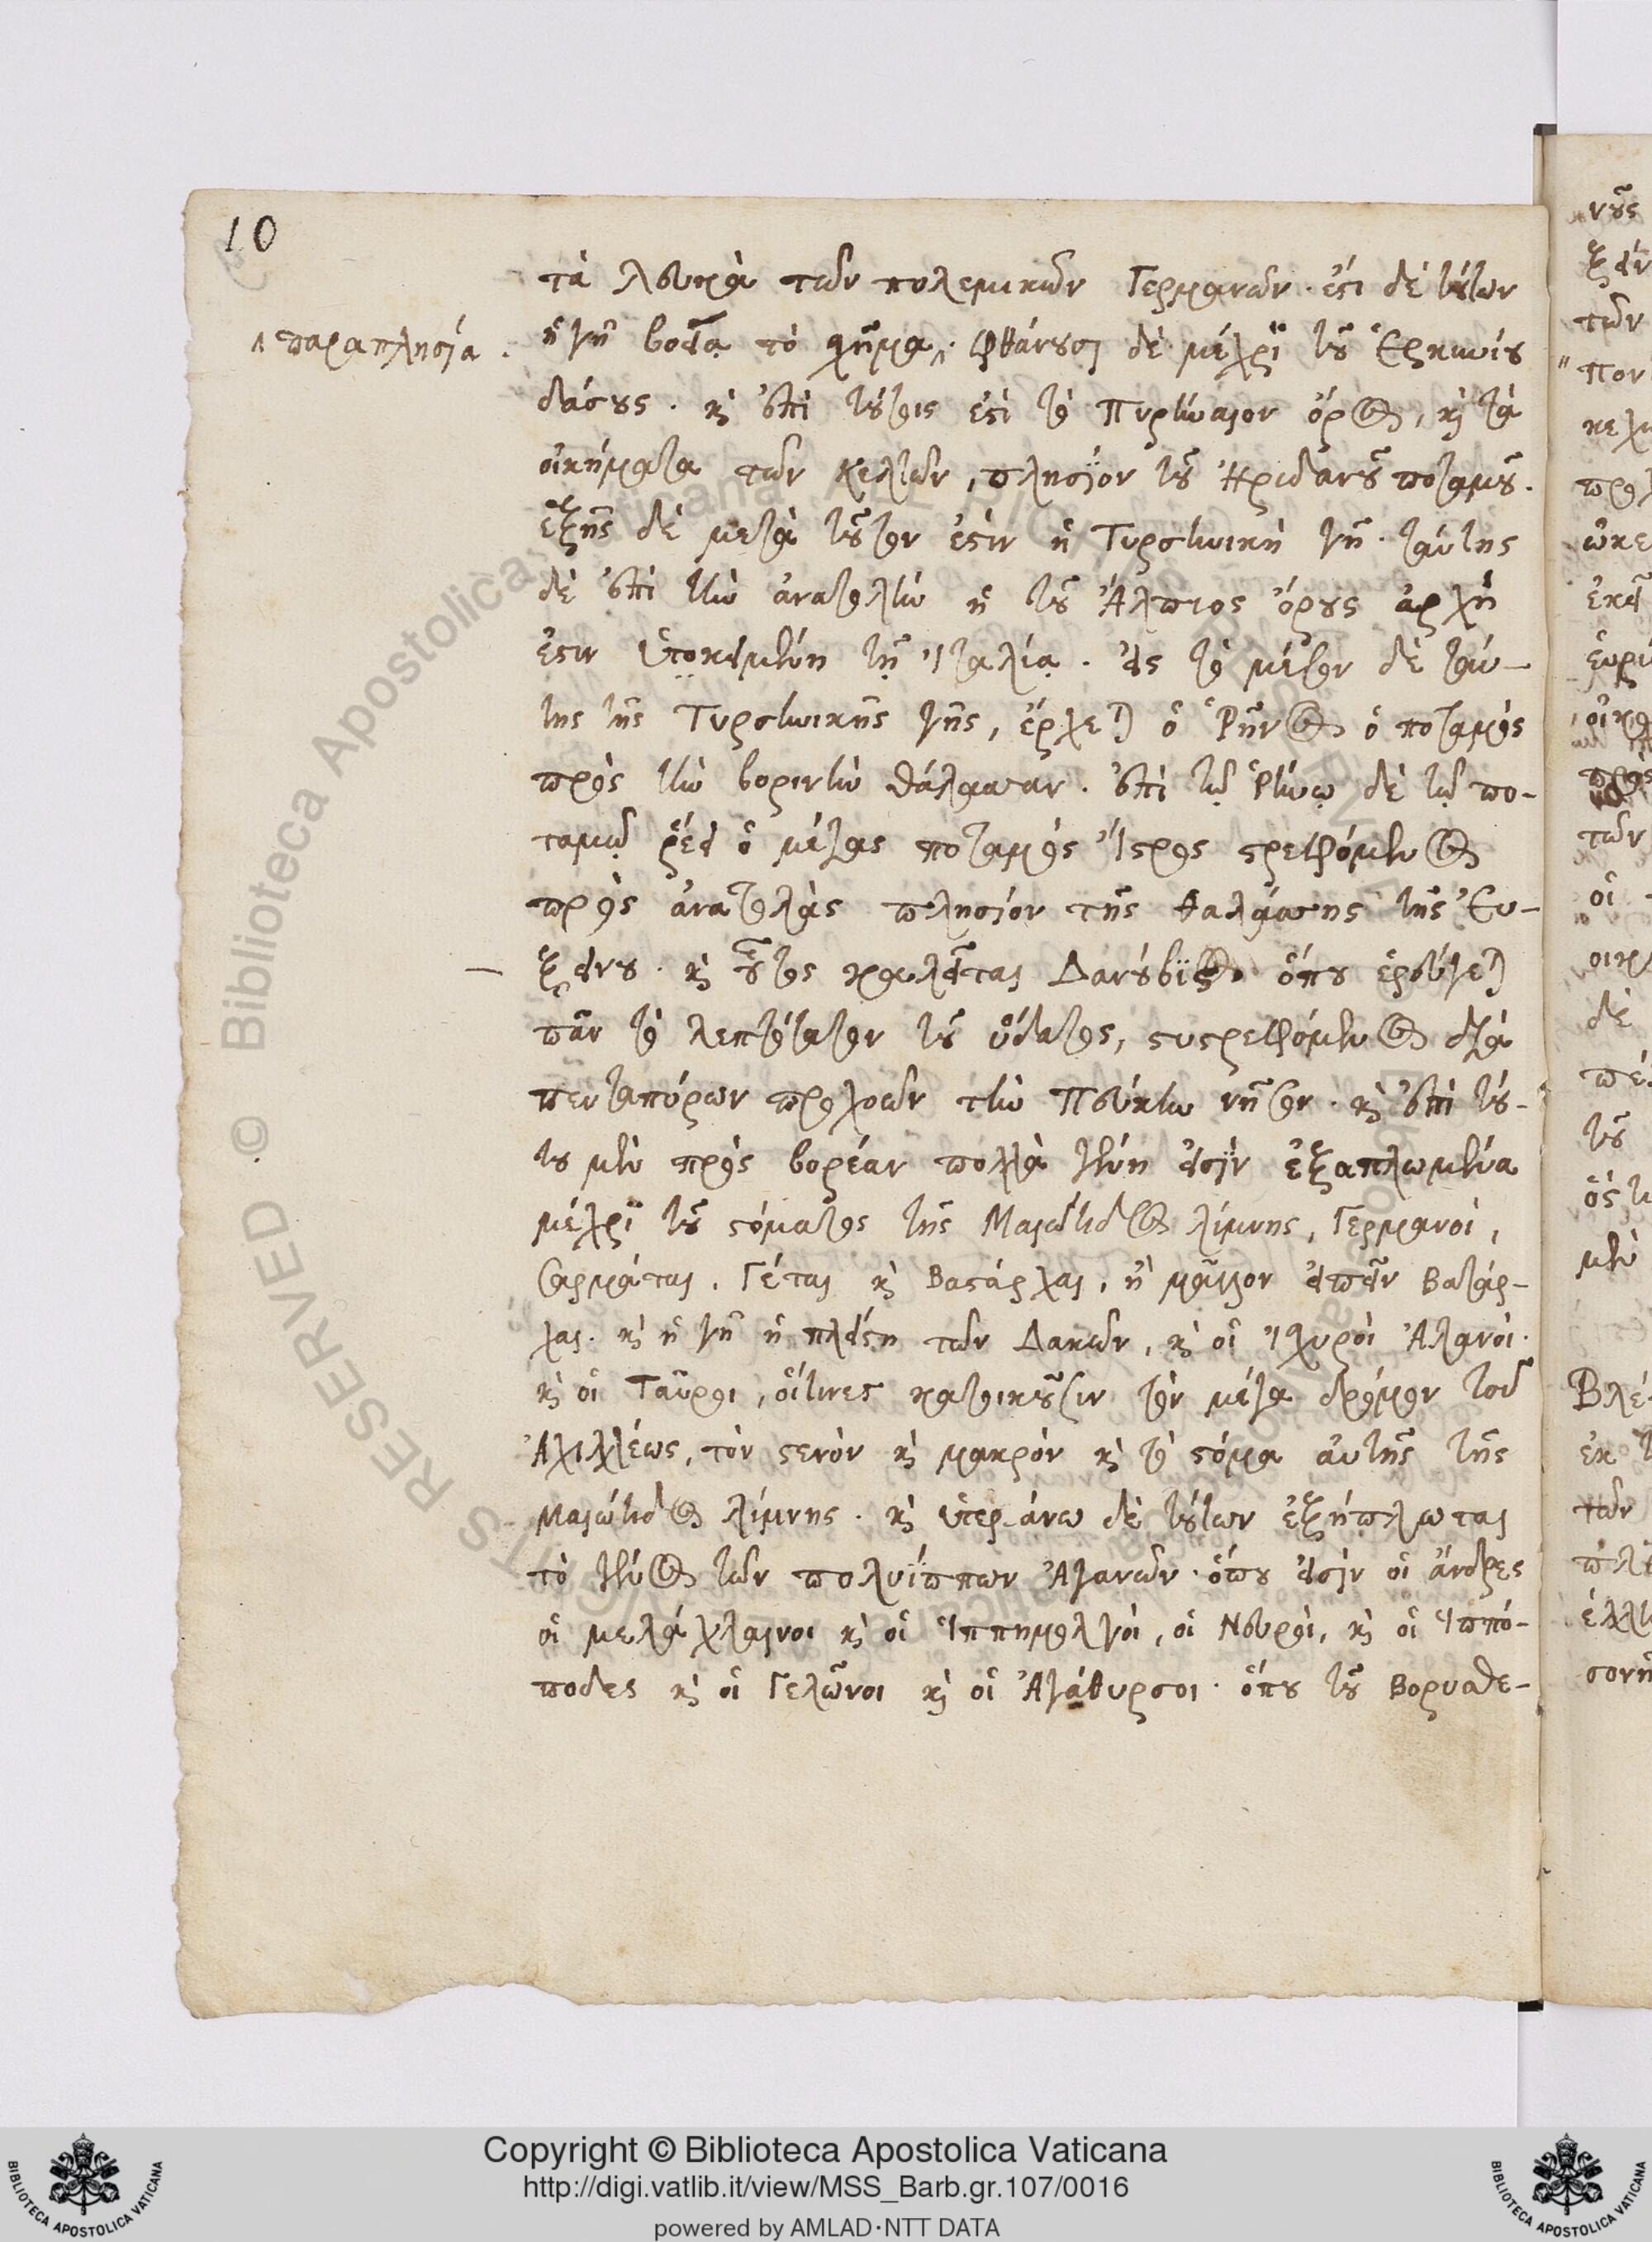 10
τὰ λευκὰ τῶν πολεμικῶν Γερμανῶν. ἔστι δὲ τούτων
παραπλησία.
ἡ γῆ βοεία τὸ σχῆμα, φθάνουσι δὲ μέχρϊ τοῦ Ἑρκυνίου
δάσους. καὶ ἐπὶ τούτοις ἐστὶ τὸ Πυρηναῖον ὄρος, καὶ τὰ
οἰκήματα τῶν Κελτῶν, πλησίον τοῦ Ἠριδανοῦ ποταμοῦ.
ἑξῆς δὲ μετὰ τοῦτον ἐστὶν ἡ Τυρσηνικὴ γῆ. ταύτης
δὲ ἐπὶ τὴν ἀνατολὴν ἡ τοῦ Ἄλπιος ὄρους ἀρχὴ
ἐστιν ὑποκειμένη τῇ Ἰταλίᾳ. εἰς τὸ μέσον δὲ ταύ-
της τῆς Τυρσηνικῆς γῆς, ἔρχεται ὁ Ῥῆνος ὁ ποταμὸς
πρὸς τὴν βορινὴν θάλασσαν. ἐπὶ τῷ Ῥήνῳ δὲ τῷ πο-
ταμῷ ῥέει ὁ μέγας ποταμὸς Ἴστρος στρεφόμενος
πρὸς ἀνατολὰς πλησίον τῆς θαλάσσης τῆς Εὐ-
ξείνου. καὶ οὗτος καλεῖται Δανούβϊος ὅπου ἐρεύγεται
πᾶν τὸ λεπτότατον τοῦ ὕδατος, συστρεφόμενος διὰ
πενταπόρων προχοῶν τὴν Πεύκην νῆσον. καὶ ἐπὶ τού-
του μὲν πρὸς βορέαν πολλὰ γένη εἰσὶν ἐξαπλωμένα
μέχρϊ τοῦ στόματος τῆς Μαιώτιδος λίμνης, Γερμανοί,
Σαρμάται, Γέται καὶ Βαστάρχαι, ἢ μᾶλλον εἰπεῖν Βατάρ-
χαι. καὶ ἡ γῆ ἡ πλείστη τῶν Δακῶν, καὶ οἱ ἰσχυροὶ Ἀλανοί.
καὶ οἱ Ταῦροι, οἵτινες κατοικοῦσιν τὸν μέγα δρόμον τοῦ
Ἀχιλλέως, τὸν στενὸν καὶ μακρὸν καὶ τὸ στόμα αὐτῆς τῆς
Μαιώτιδος λίμνης. καὶ ὑπεράνω δὲ τούτων ἐξήπλωται
τὸ γένος τῶν πολυΐππων Ἀγανῶν. ὅπου εἰσὶν οἱ ἄνδρες
οἱ μελάγχλαινοι καὶ οἱ Ἱππημολγοί, οἱ Νευροί, καὶ οἱ Ἱππό-
ποδες καὶ οἱ Γελῶνοι καὶ οἱ Ἀγάθυρσοι. ὅπου τοῦ Βορυσθε-
Copyright © Biblioteca Apostolica Vaticana
http://digi.vatlib.it/view/MSS_Barb.gr.107/0016
powered by AMLAD·NTT DATA
BIBLIOTECA APOSTOLICA VATICANA
BIBLIOTECA APOSTOLICA VATICANA